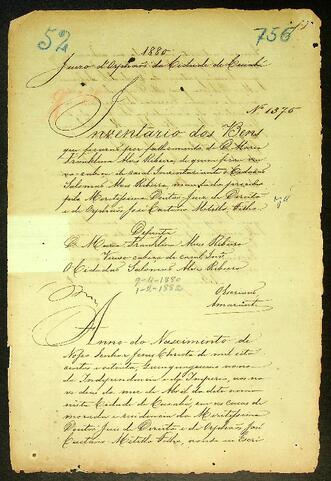 52
756
1880
Juizo d'Orphãos da Cidade de Cuiabá
Nº 1375
Inventario dos Bens
que ficaram por fallecimento de D. Maria
Franklina Alves Ribeiro, de quem ficou
cabeça de casal Inventariante o Cidadão
Salomão Alves Ribeiro, mandado proceder
pelo Meretissimo Doutor Juiz de Direito
e de Orphãos José Caetano Metello Filho
Defunta
D. Maria Franklina Alves Ribeiro
Viuvo cabeça de casal Invº
O Cidadão Salomão Alves Ribeiro
9-4-1880
1-2-1882
Escrivão
Amarante
Anno do Nascimento de
Nosso Senhor Jesus Christo de mil oito
centos e oitenta, quinquagesimo nono
da Independencia e do Imperio, aos no
ve dias do mez de Abril do dito anno
nesta Cidade de Cuiabá, em as casas de
morada e residencia do Meretissimo
Doutor Juiz de Direito e de Orphãos José
Caetano Metello Filho, aonde eu Escri